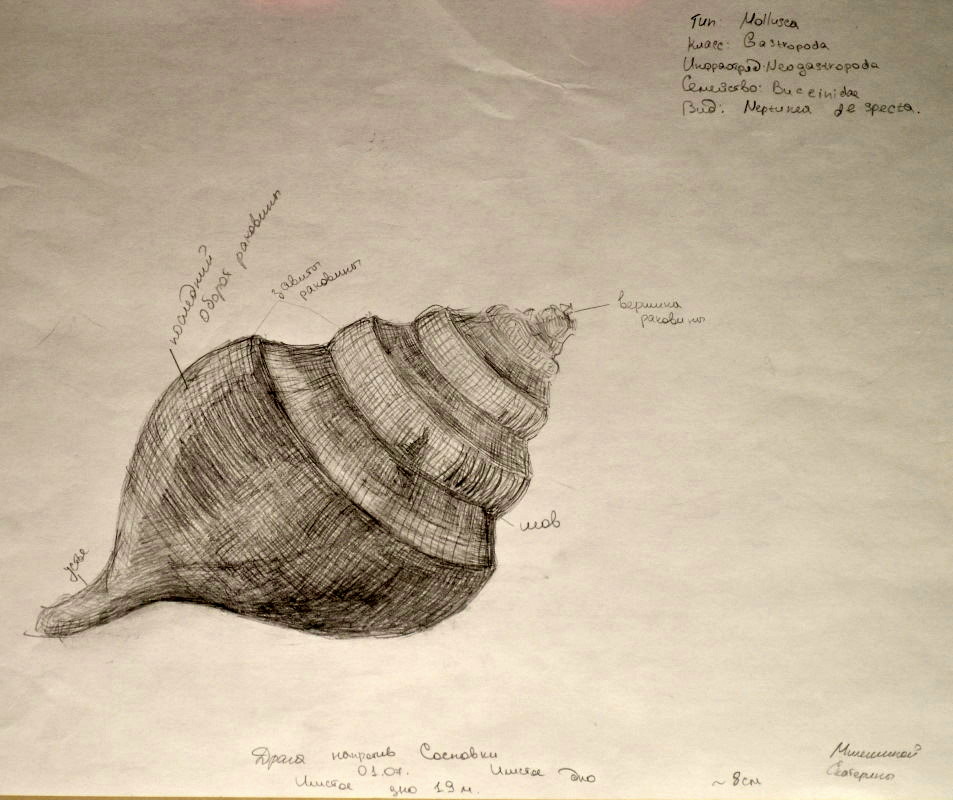 Тип: Mollusca
Класс: Gastropoda
Инфраотряд: Neogastropoda
Семейство: Buccinidae
Вид: Neptunea despecta.
последний
оборот раковины
завиты
раковины
вершина
раковины
шов
устье
Драга напротив Сосновки
01.07. Илистое дно
Илистое дно 19 м.
~ 8см
Екатерины